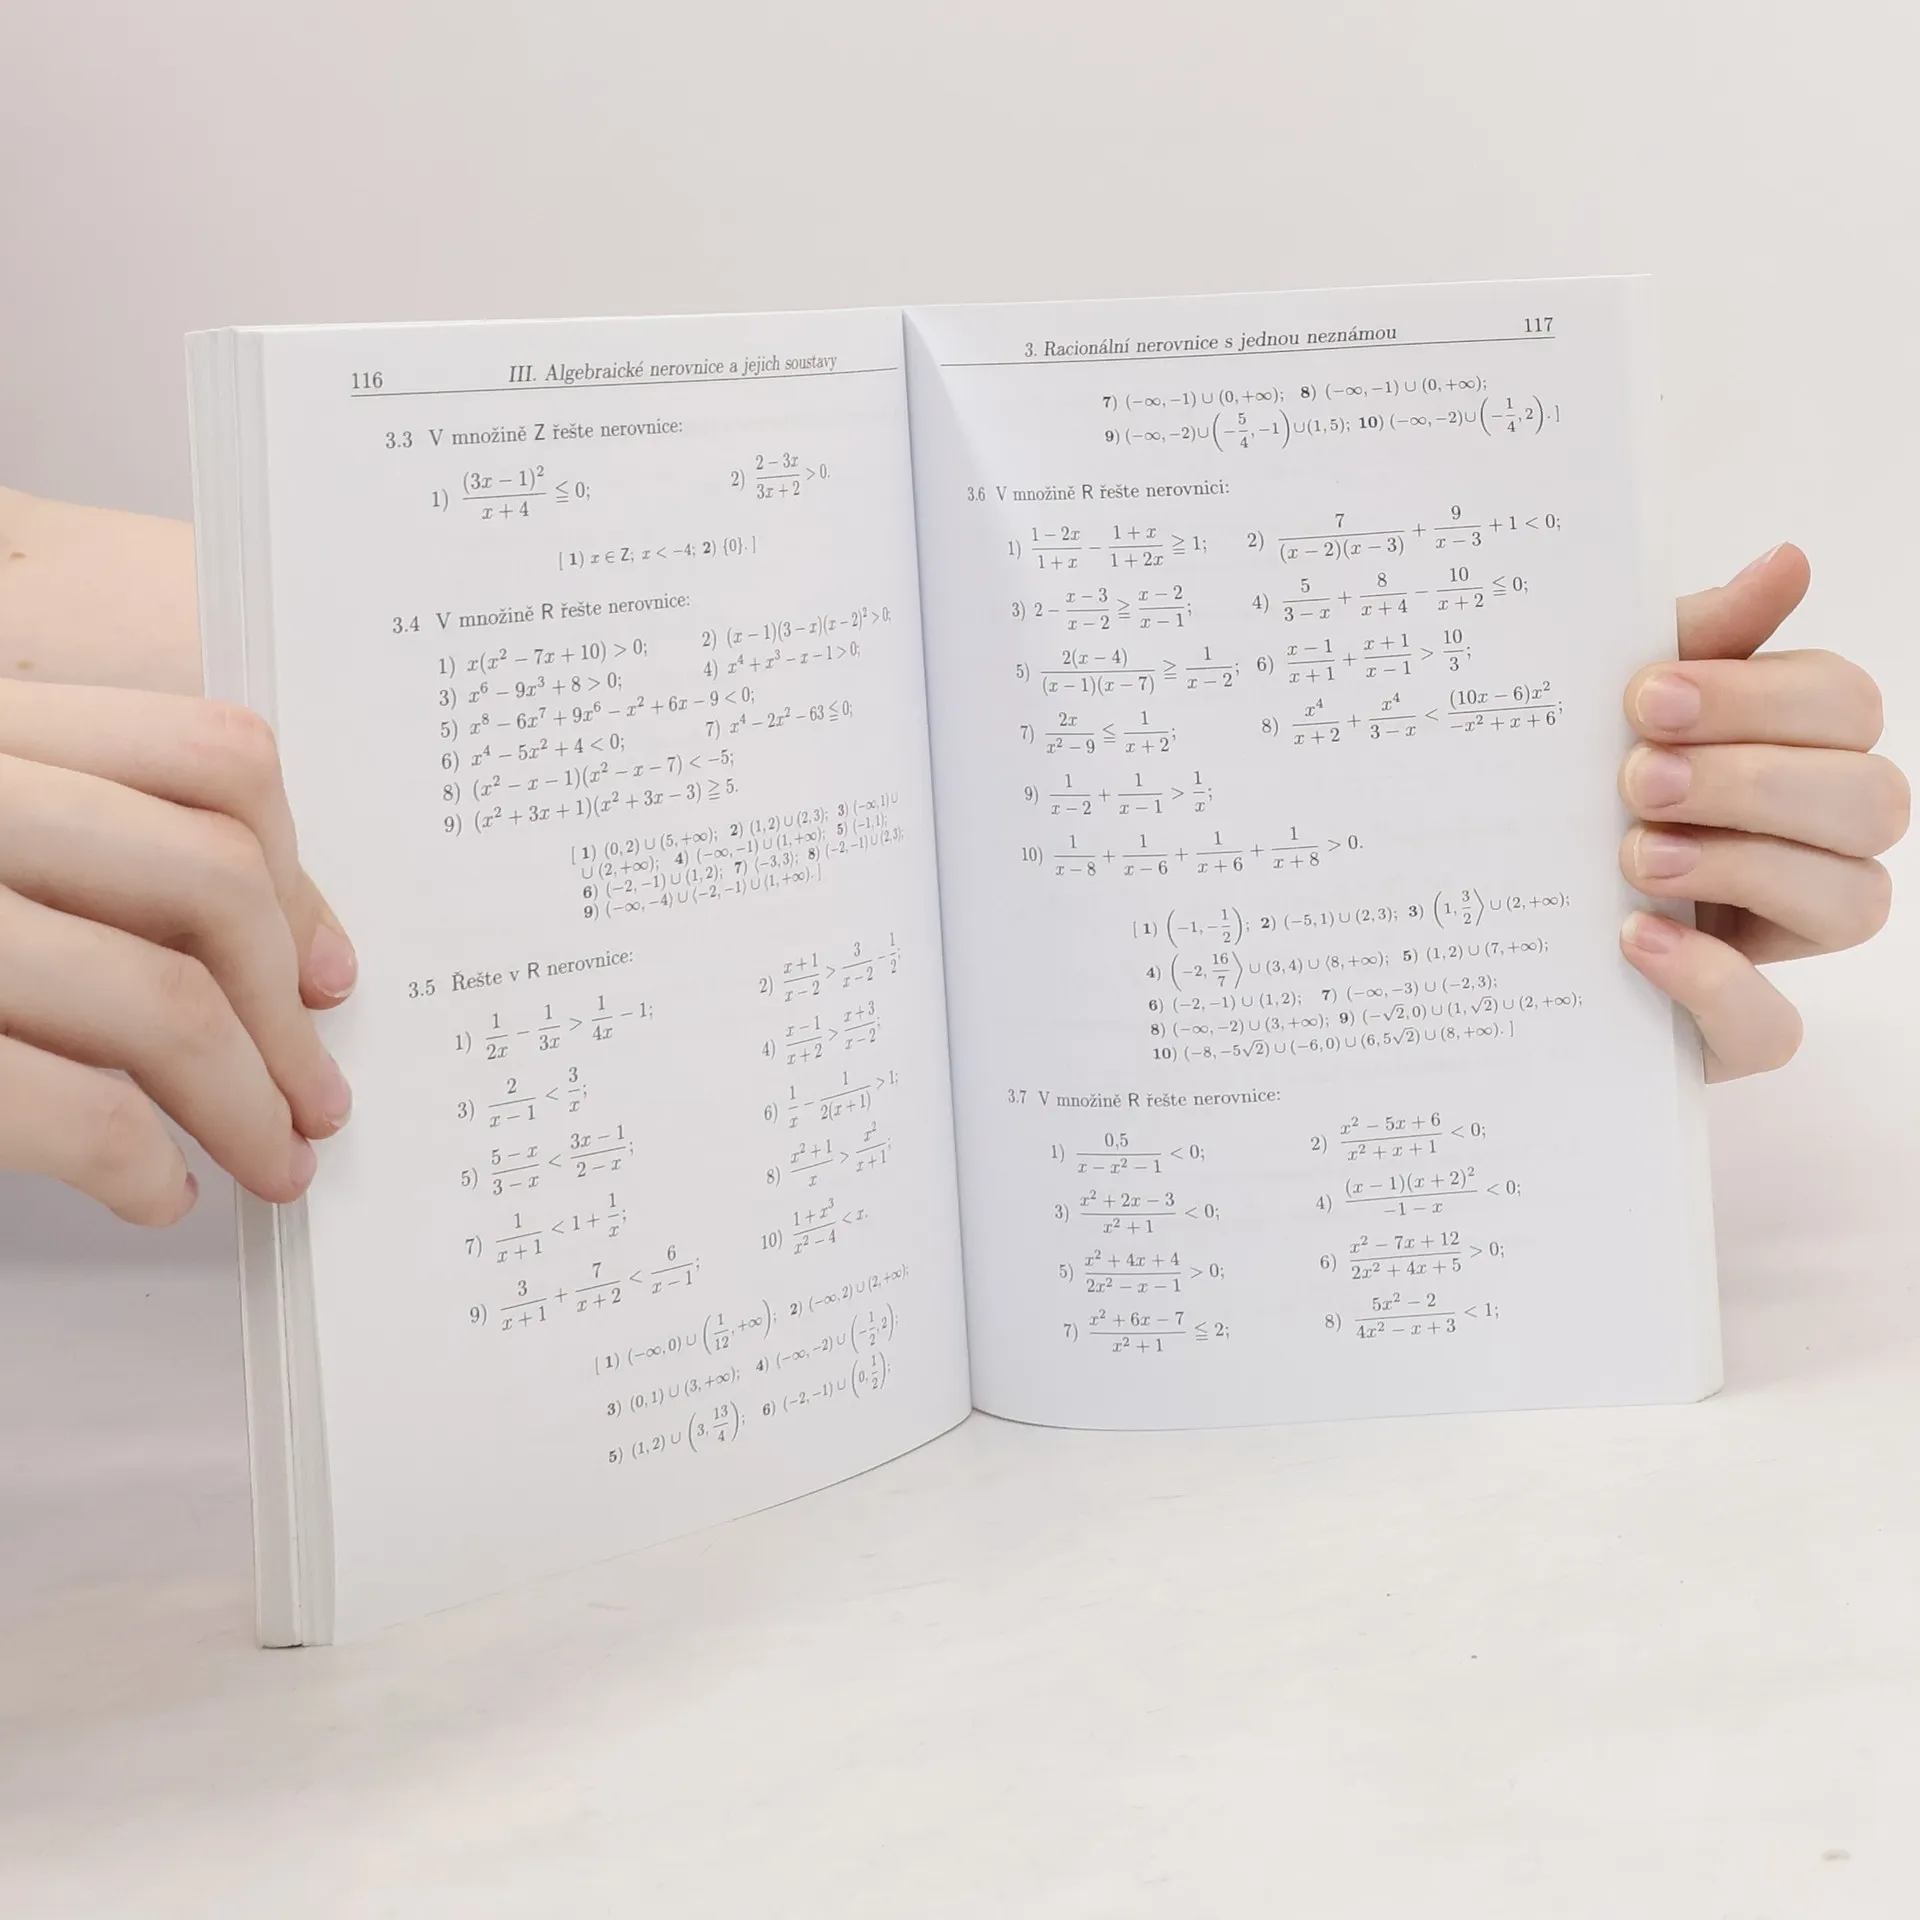 116 III. Algebraické nerovnice a jejich soustavy
3.3 V množině Z řešte nerovnice:
1) (3x − 1)²/(x + 4) ≦ 0; 2) (2 − 3x)/(3x + 2) > 0.
[ 1) x ∈ Z; x < −4; 2) {0}. ]
3.4 V množině R řešte nerovnice:
1) x(x² − 7x + 10) > 0; 2) (x − 1)(3 − x)(x − 2)² > 0;
3) x⁶ − 9x³ + 8 > 0; 4) x⁴ + x³ − x − 1 > 0;
5) x⁸ − 6x⁷ + 9x⁶ − x² + 6x − 9 < 0;
6) x⁴ − 5x² + 4 < 0; 7) x⁴ − 2x² − 63 ≦ 0;
8) (x² − x − 1)(x² − x − 7) < −5;
9) (x² + 3x + 1)(x² + 3x − 3) ≧ 5.
[ 1) (0, 2) ∪ (5, +∞); 2) (1, 2) ∪ (2, 3); 3) (−∞, 1) ∪
∪ (2, +∞); 4) (−∞, −1) ∪ (1, +∞); 5) (−1, 1);
6) (−2, −1) ∪ (1, 2); 7) ⟨−3, 3⟩; 8) (−2, −1) ∪ (2, 3);
9) (−∞, −4⟩ ∪ ⟨−2, −1⟩ ∪ ⟨1, +∞). ]
3.5 Řešte v R nerovnice:
1) 1/(2x) − 1/(3x) > 1/(4x) − 1; 2) (x + 1)/(x − 2) > 3/(x − 2) − 1/2;
3) 2/(x − 1) < 3/x; 4) (x − 1)/(x + 2) > (x + 3)/(x − 2);
5) (5 − x)/(3 − x) < (3x − 1)/(2 − x); 6) 1/x − 1/(2(x + 1)) > 1;
7) 1/(x + 1) < 1 + 1/x; 8) (x² + 1)/x > x²/(x + 1);
9) 3/(x + 1) + 7/(x + 2) < 6/(x − 1); 10) (1 + x³)/(x² − 4) < x.
[ 1) (−∞, 0) ∪ (1/12, +∞); 2) (−∞, 2) ∪ (2, +∞);
3) (0, 1) ∪ (3, +∞); 4) (−∞, −2) ∪ (−1/2, 2);
5) (1, 2) ∪ (3, 13/4); 6) (−2, −1) ∪ (0, 1/2);
3. Racionální nerovnice s jednou neznámou 117
7) (−∞, −1) ∪ (0, +∞); 8) (−∞, −1) ∪ (0, +∞);
9) (−∞, −2) ∪ (−5/4, −1) ∪ (1, 5); 10) (−∞, −2) ∪ (−1/4, 2). ]
3.6 V množině R řešte nerovnici:
1) (1 − 2x)/(1 + x) − (1 + x)/(1 + 2x) ≧ 1; 2) 7/((x − 2)(x − 3)) + 9/(x − 3) + 1 < 0;
3) 2 − (x − 3)/(x − 2) ≧ (x − 2)/(x − 1); 4) 5/(3 − x) + 8/(x + 4) − 10/(x + 2) ≦ 0;
5) 2(x − 4)/((x − 1)(x − 7)) ≧ 1/(x − 2); 6) (x − 1)/(x + 1) + (x + 1)/(x − 1) > 10/3;
7) 2x/(x² − 9) ≦ 1/(x + 2); 8) x⁴/(x + 2) + x⁴/(3 − x) < (10x − 6)x²/(−x² + x + 6);
9) 1/(x − 2) + 1/(x − 1) > 1/x;
10) 1/(x − 8) + 1/(x − 6) + 1/(x + 6) + 1/(x + 8) > 0.
[ 1) (−1, −1/2); 2) (−5, 1) ∪ (2, 3); 3) (1, 3/2⟩ ∪ (2, +∞);
4) (−2, 16/7⟩ ∪ (3, 4) ∪ ⟨8, +∞); 5) (1, 2) ∪ (7, +∞);
6) (−2, −1) ∪ (1, 2); 7) (−∞, −3) ∪ (−2, 3);
8) (−∞, −2) ∪ (3, +∞); 9) (−√2, 0) ∪ (1, √2) ∪ (2, +∞);
10) (−8, −5√2) ∪ (−6, 0) ∪ (6, 5√2) ∪ (8, +∞). ]
3.7 V množině R řešte nerovnice:
1) 0,5/(x − x² − 1) < 0; 2) (x² − 5x + 6)/(x² + x + 1) < 0;
3) (x² + 2x − 3)/(x² + 1) < 0; 4) (x − 1)(x + 2)²/(−1 − x) < 0;
5) (x² + 4x + 4)/(2x² − x − 1) > 0; 6) (x² − 7x + 12)/(2x² + 4x + 5) > 0;
7) (x² + 6x − 7)/(x² + 1) ≦ 2; 8) (5x² − 2)/(4x² − x + 3) < 1;